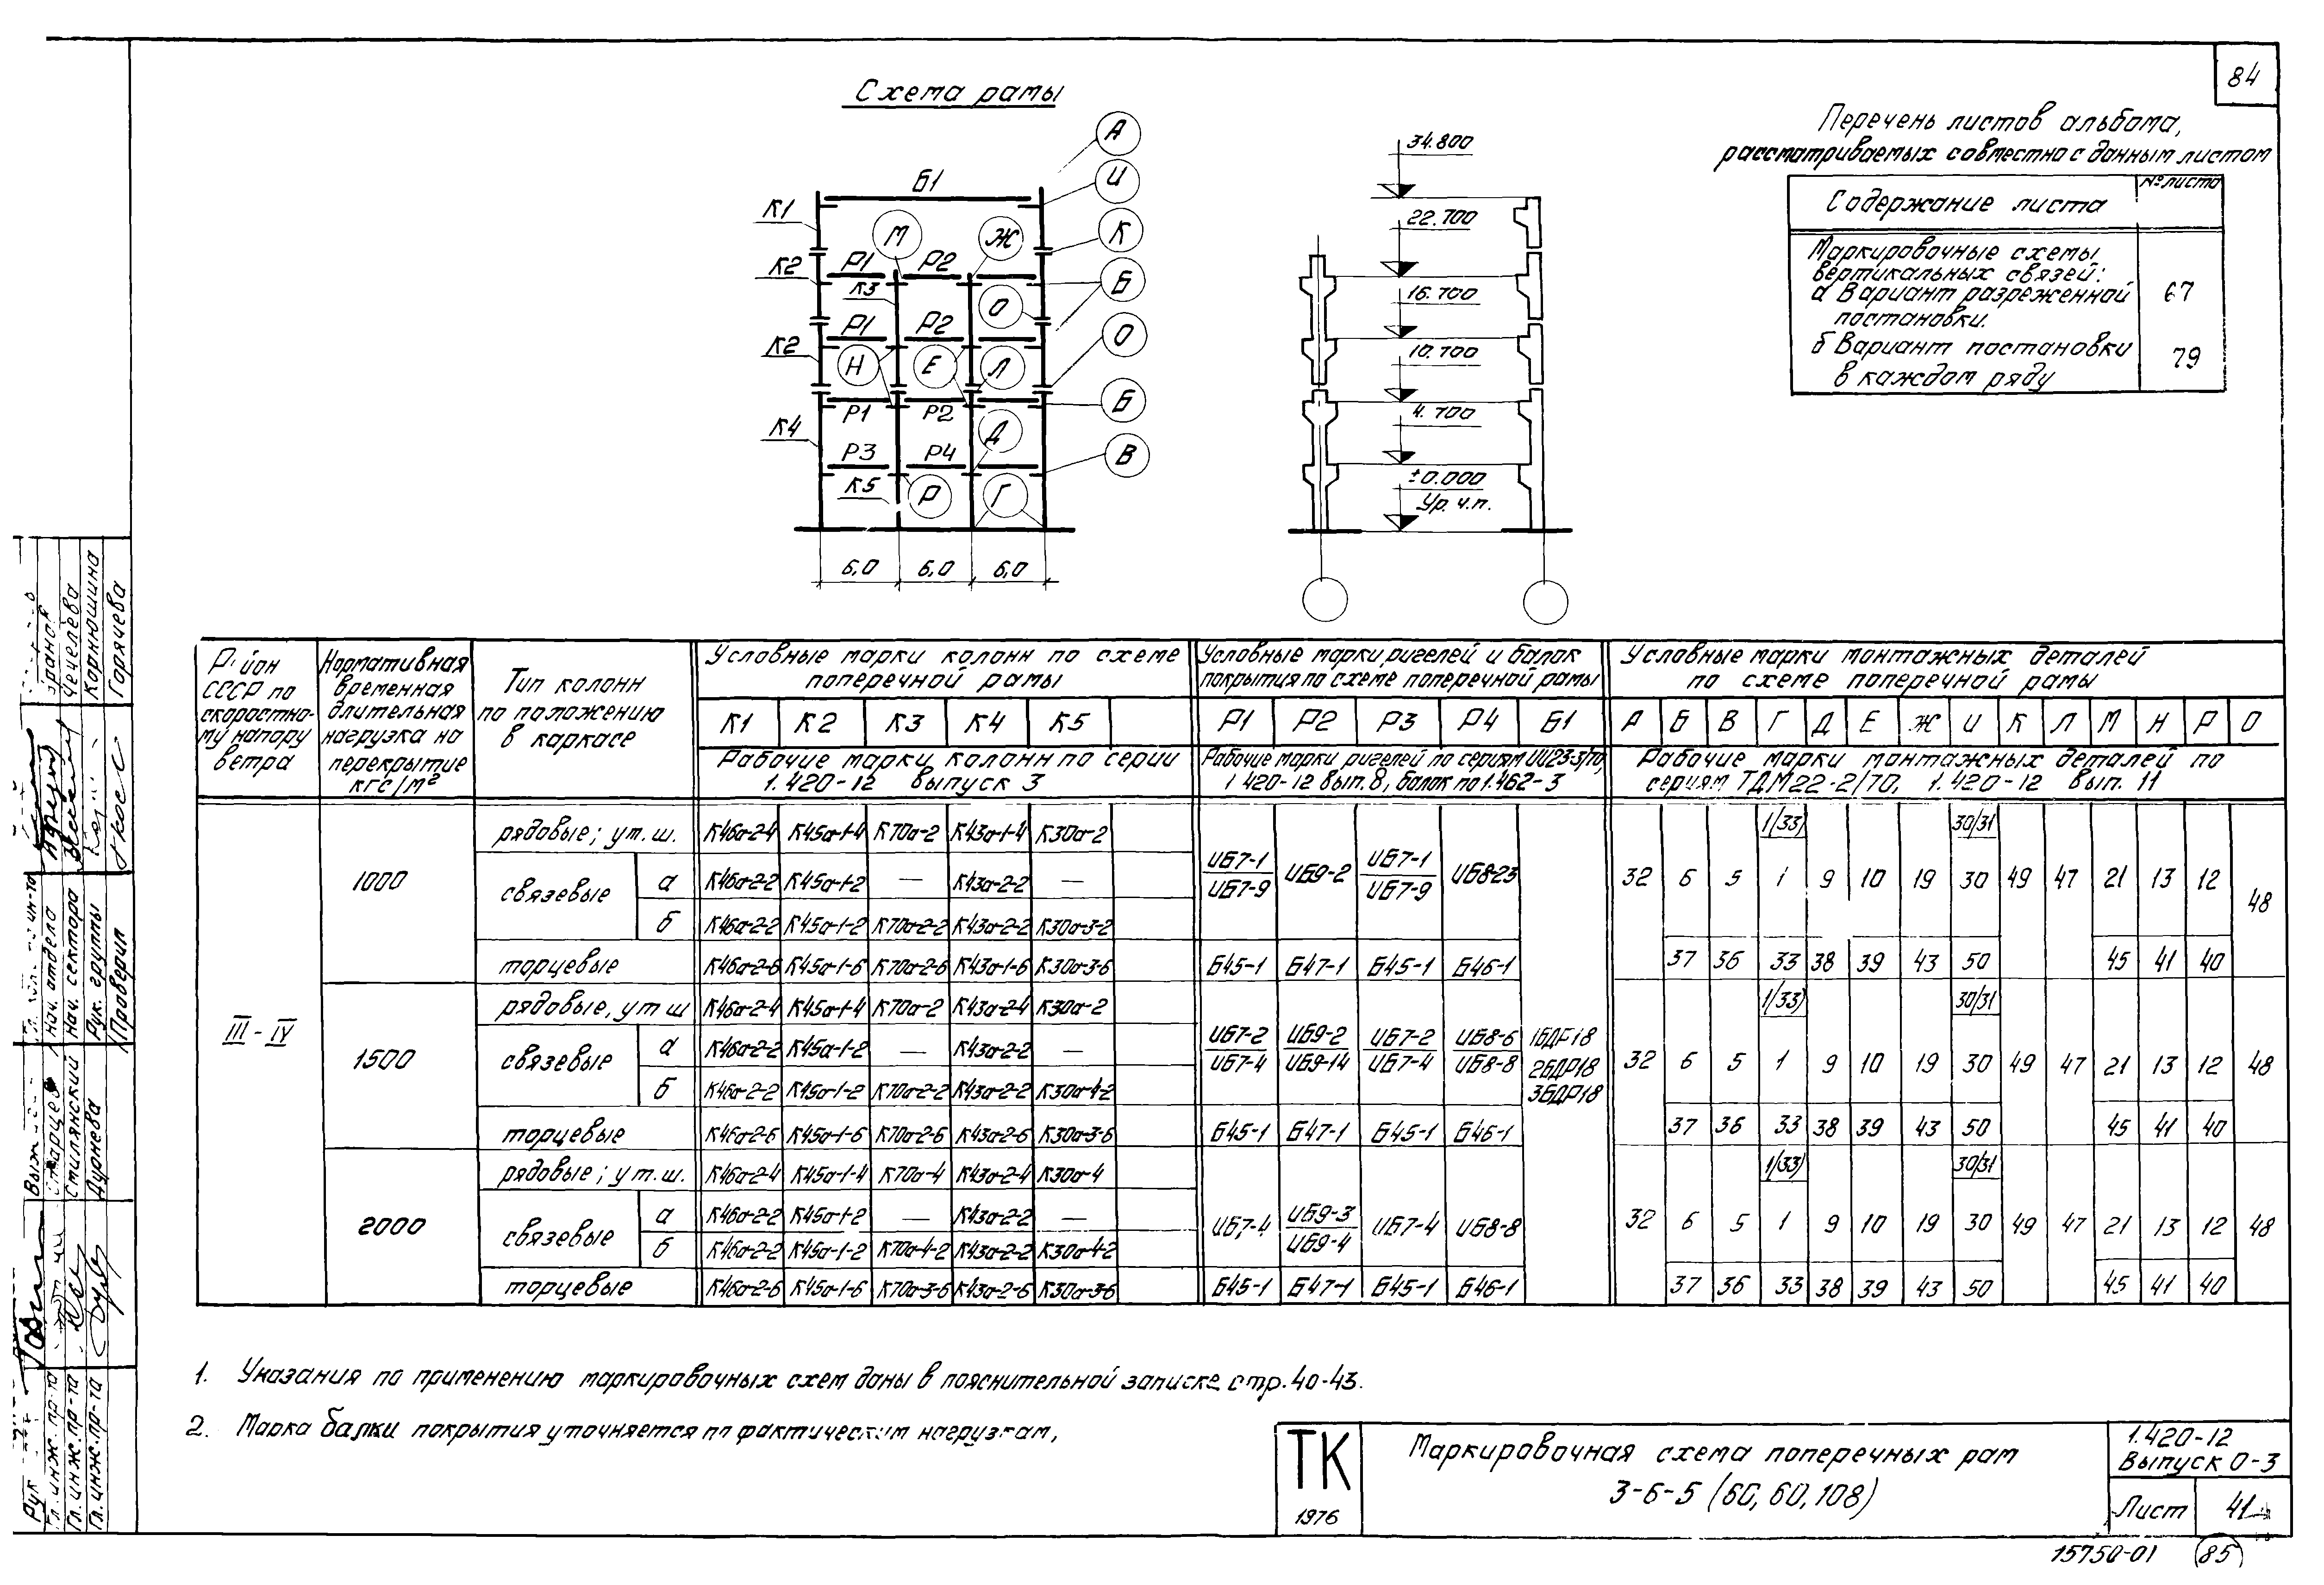 84
Схема рамы
Перечень листов альбома,
рассматриваемых совместно с данным листом
Содержание листа
№ листа
Маркировочные схемы
вертикальных связей:
а Вариант разреженной
постановки.
67
б Вариант постановки
в каждом ряду
79
А
И
К
Б
О
Б
В
Б1
К1
К2
К2
К4
М
Ж
Р1
Р2
К3
О
Р1
Р2
Н
Е
Л
Р1
Р2
Д
Р3
Р4
К5
Р
Г
6,0
6,0
6,0
34.800
22.700
16.700
10.700
4.700
±0.000
Ур. ч.п.
Район СССР по скоростному напору ветра
Нормативная временная длительная нагрузка на перекрытие кгс/м²
Тип колонн по положению в каркасе
Условные марки колонн по схеме поперечной рамы
Условные марки ригелей и балок покрытия по схеме поперечной рамы
Условные марки монтажных деталей по схеме поперечной рамы
К1 К2 К3 К4 К5
Р1 Р2 Р3 Р4 Б1
А Б В Г Д Е Ж И К Л М Н Р О
Рабочие марки колонн по серии 1.420-12 выпуск 3
Рабочие марки ригелей по сериям ИИ23-3/70, 1.420-12 вып. 8, балок по 1.462-3
Рабочие марки монтажных деталей по сериям ТДМ22-2/70, 1.420-12 вып. 11
III - IV
1000
рядовые; у т.ш. К46а-2-4 К45а-1-4 К70а-2 К43а-1-4 К30а-2
связевые
а К46а-2-2 К45а-1-2 — К43а-2-2 —
б К46а-2-2 К45а-1-2 К70а-2-2 К43а-2-2 К30а-3-2
торцевые К46а-2-6 К45а-1-6 К70а-2-6 К43а-1-6 К30а-3-6
ИБ7-1/ИБ7-9 ИБ9-2 ИБ7-1/ИБ7-9 ИБ8-23
Б45-1 Б47-1 Б45-1 Б46-1
1/33) 30/31
32 6 5 1 9 10 19 30 49 47 21 13 12 48
37 36 33 38 39 43 50 45 41 40
1500
рядовые, у т ш К46а-2-4 К45а-1-4 К70а-2 К43а-2-4 К30а-2
связевые
а К46а-2-2 К45а-1-2 — К43а-2-2 —
б К46а-2-2 К45а-1-2 К70а-2-2 К43а-2-2 К30а-4-2
торцевые К46а-2-6 К45а-1-6 К70а-2-6 К43а-2-6 К30а-3-6
ИБ7-2/ИБ7-4 ИБ9-2/ИБ9-14 ИБ7-2/ИБ7-4 ИБ8-6/ИБ8-8
1БДР18
2БДР18
3БДР18
Б45-1 Б47-1 Б45-1 Б46-1
1/33) 30/31
32 6 5 1 9 10 19 30 49 47 21 13 12 48
37 36 33 38 39 43 50 45 41 40
2000
рядовые; у т.ш. К46а-2-4 К45а-1-4 К70а-4 К43а-2-4 К30а-4
связевые
а К46а-2-2 К45а-1-2 — К43а-2-2 —
б К46а-2-2 К45а-1-2 К70а-4-2 К43а-2-2 К30а-4-2
торцевые К46а-2-6 К45а-1-6 К70а-3-6 К43а-2-6 К30а-3-6
ИБ7-4 ИБ9-3/ИБ9-4 ИБ7-4 ИБ8-8
Б45-1 Б47-1 Б45-1 Б46-1
1/33) 30/31
32 6 5 1 9 10 19 30 49 47 21 13 12 48
37 36 33 38 39 43 50 45 41 40
1. Указания по применению маркировочных схем даны в пояснительной записке стр. 40-43.
2. Марка балки покрытия уточняется по фактическим нагрузкам,
ТК
1976
Маркировочная схема поперечных рам
3-6-5 (60, 60, 108)
1.420-12
Выпуск 0-3
Лист 41
15750-01
85
Чечелева
Корнюшина
Горячева
Нач. отдела
Нач. сектора
Рук. группы
Проверил
Старцев
Стилянский
Дурнева
Рук
Гл. инж. пр-та
Гл. инж. пр-та
Гл. инж. пр-та